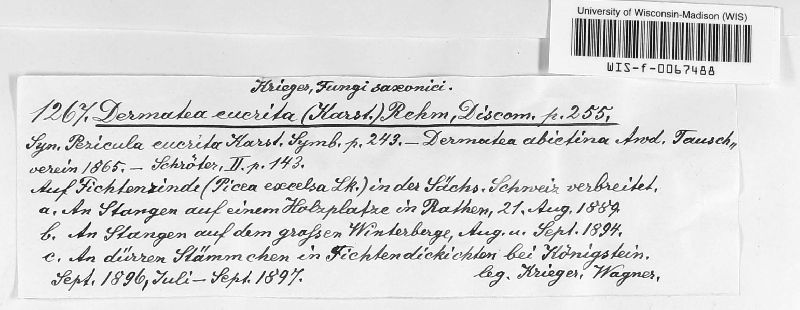 University of Wisconsin-Madison (WIS)
WIS-f-0067488
Krieger, Fungi saxonici.
1267. Dermatea eucrita (Karst.) Rehm, Discom. p. 255.
Syn. Pezicula eucrita Karst. Symb. p. 243. — Dermatea abietina Awd. Tausch-
verein 1865. — Schröter, II. p. 143.
Auf Fichtenrinde (Picea excelsa Lk.) in der Sächs. Schweiz verbreitet.
a. An Stangen auf einem Holzplatze in Rathen, 21. Aug. 1889.
b. An Stangen auf dem grossen Winterberge, Aug. u. Sept. 1894.
c. An dürren Stämmchen in Fichtendickichten bei Königstein.
Sept. 1896, Juli — Sept. 1897. leg. Krieger, Wagner.